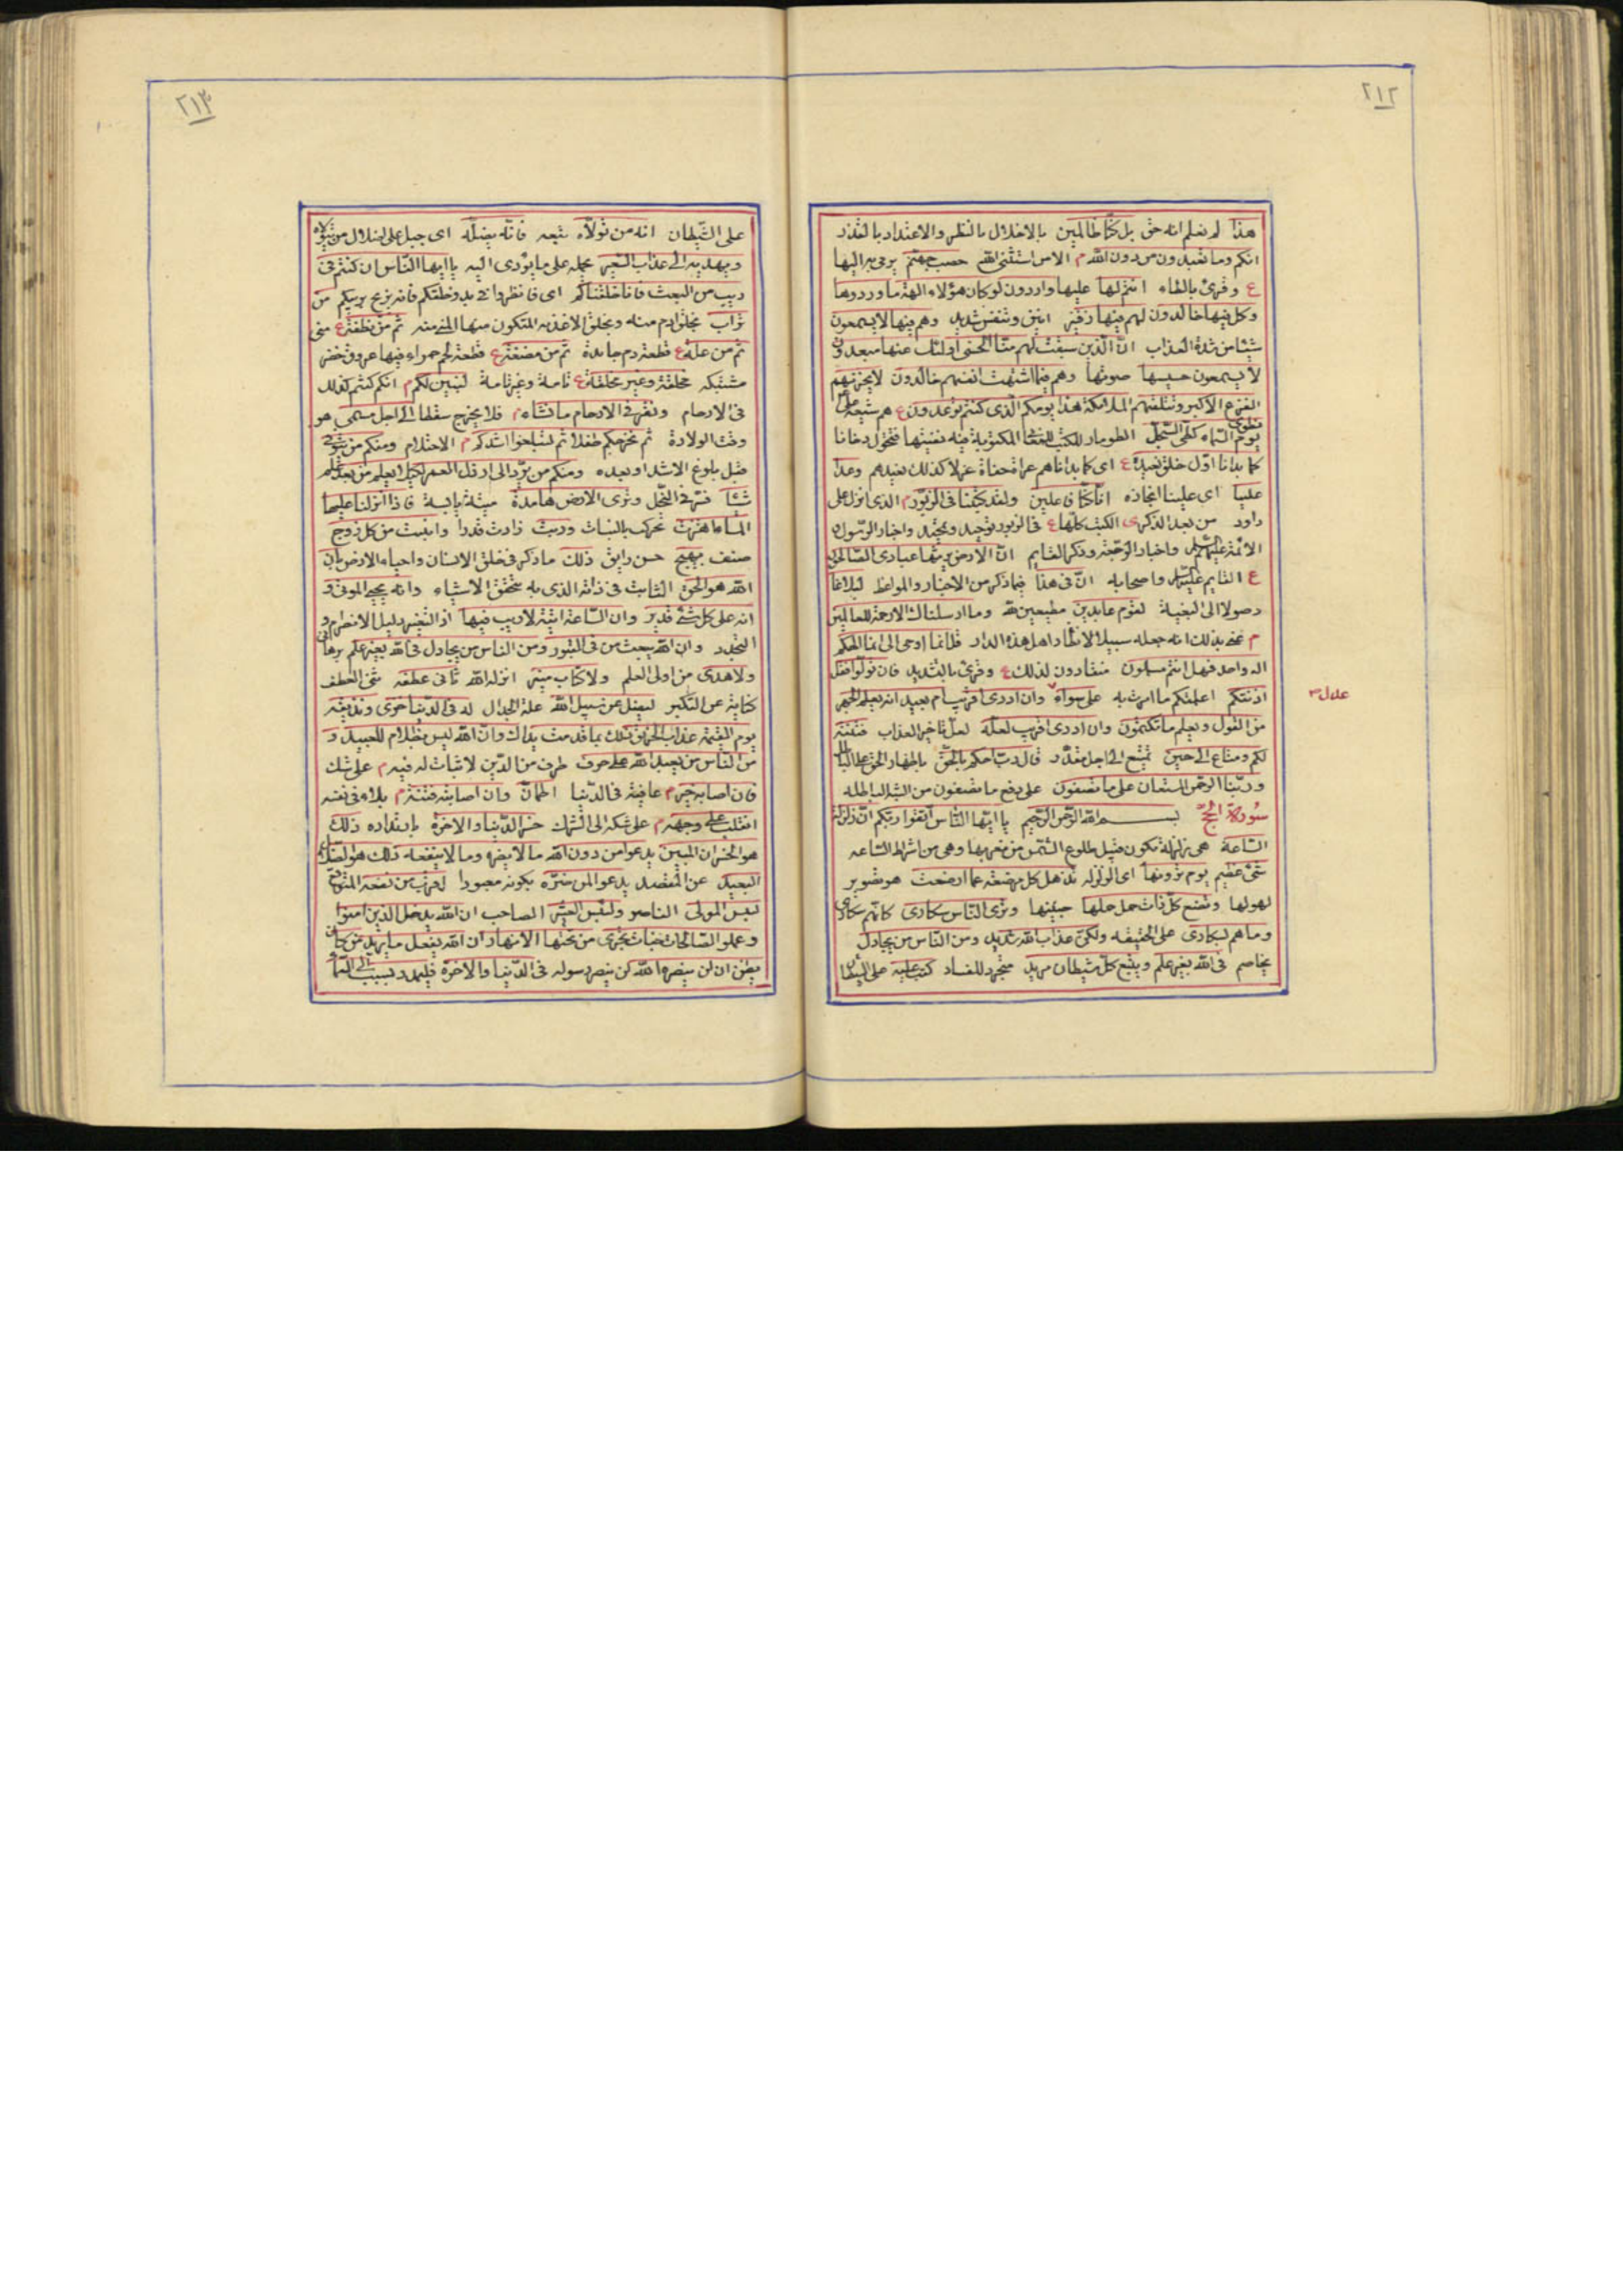 ٢١٢
هذا لم نعلم انه حق بل كنا ظالمين بالاخلال بالنظر والاعتداد بالنذر
انكم وما تعبدون من دون الله م الا من استثنى الله حصب جهنم يرمى به اليها
ع وقرئ بالطاء انتم لها عليها واردون لو كان هؤلاء الهة ما وردوها
وكل فيها خالدون لهم فيها زفير انين وتنفس شديد وهم فيها لا يسمعون
شيئا من شدة العذاب ان الذين سبقت لهم منا الحسنى اولئك عنها مبعدون
لا يسمعون حسيسها صوتها وهم فيما اشتهت انفسهم خالدون لا يحزنهم
الفزع الاكبر وتتلقيهم الملائكة هذا يومكم الذى كنتم توعدون ع هم شيعة على
يوم نطوى السماء كطى السجل الطومار للكتب المكتوبة فيه نفنيها فتحول دخانا
كما بدانا اول خلق نعيده ع اى كما بداناهم عراة حفاة عزلا كذلك نعيدهم وعدا
علينا اى علينا انجازه انا كنا فاعلين ولقد كتبنا فى الزبور م الذى انزل على
داود من بعد الذكر ى الكتب كلها ع فى الزبور توحيد وتمجيد واخبار الرسول
الائمة عليهم السلم واخبار الرجعة وذكر القايم ان الارض يرثها عبادى الصالحون
ع القايم عليه السلم واصحابه ان فى هذا فيما ذكر من الاخبار والمواعظ لبلاغا
وصولا الى البغية لقوم عابدين مطيعين لله وما ارسلناك الا رحمة للعالمين
م عنى بذلك انه جعله سبيلا لانظار اهل هذه الدار قل انما اوحى الى انما الهكم
اله واحد فهل انتم مسلمون منقادون لذلك ع وقرئ بالتشديد فان تولوا فقل
اذنتكم اعلمتكم ما امرت به على سواء وان ادرى اقريب ام بعيد انه يعلم الجهر
من القول ويعلم ما تكتمون وان ادرى اقريب لعله لعل تاخير العذاب فتنة
لكم ومتاع الى حين تمتع الى اجل مقدر قال رب احكم بالحق باظهار الحق على الباطل
وربنا الرحمن المستعان على ما تصفون على دفع ما تصفون من الشبه الباطلة
سورة الحج بسم الله الرحمن الرحيم يا ايها الناس اتقوا ربكم ان زلزلة
الساعة هى زلزلة تكون قبيل طلوع الشمس من مغربها وهى من اشراط الساعة
شئ عظيم يوم ترونها اى الزلزلة تذهل كل مرضعة عما ارضعت هو تصوير
لهولها وتضع كل ذات حمل حملها جنينها وترى الناس سكارى كانهم سكارى
وما هم بسكارى على الحقيقة ولكن عذاب الله شديد ومن الناس من يجادل
يخاصم فى الله بغير علم ويتبع كل شيطان مريد متجرد للفساد كتب عليه على الشيطان
٢١٣
على الشيطان انه من تولاه تبعه فانه يضله اى جبل على اضلال من تولاه
ويهديه الى عذاب السعير يحمله على ما يؤدى اليه يا ايها الناس ان كنتم فى
ريب من البعث فانا خلقناكم اى فانظروا فى بدو خلقكم فانه يزيح ريبكم من
تراب بخلق ادم منه وبخلق الاغذية المتكون منها المنى منه ثم من نطفة ع منى
ثم من علقة ع قطعة دم جامدة ثم من مضغة ع قطعة لحم حمراء فيها عروق خضر
مشتبكة مخلقة وغير مخلقة ع تامة وغير تامة لنبين لكم م انكم كنتم كذلك
فى الارحام ونقر فى الارحام ما نشاء م فلا يخرج سقطا الى اجل مسمى هو
وقت الولادة ثم نخرجكم طفلا ثم لتبلغوا اشدكم م الاحتلام ومنكم من يتوفى
قبل بلوغ الاشد او بعده ومنكم من يرد الى ارذل العمر لكيلا يعلم من بعد علم
شيئا فسر فى النحل وترى الارض هامدة ميتة يابسة فاذا انزلنا عليها
الماء اهتزت تحركت بالنبات وربت زادت قدرا وانبتت من كل زوج
صنف بهيج حسن رايق ذلك ما ذكر فى خلق الانسان واحياء الارض بان
الله هو الحق الثابت فى ذاته الذى به تتحقق الاشياء وانه يحيى الموتى و
انه على كل شئ قدير وان الساعة اتية لا ريب فيها اذ التغير دليل الانصرام و
التجدد وان الله يبعث من فى القبور ومن الناس من يجادل فى الله بغير علم برهانى
ولا هدى من اولى العلم ولا كتاب منير انزله الله ثانى عطفه ثنى العطف
كناية عن التكبر ليضل عن سبيل الله علة الجدال له فى الدنيا خزى ونذيقه
يوم القيمة عذاب الحريق ذلك بما قدمت يداك وان الله ليس بظلام للعبيد و
من الناس من يعبد الله على حرف طرف من الدين لا ثبات له فيه م على شك
فان اصابه خير م عافية فى الدنيا اطمان وان اصابته فتنة م بلاء فى نفسه
انقلب على وجهه م على شكه الى الشرك خسر الدنيا والاخرة بارتداده ذلك
هو الخسران المبين يدعو من دون الله ما لا يضره وما لا ينفعه ذلك هو الضلال
البعيد عن المقصد يدعو لمن ضره بكونه معبودا اقرب من نفعه المتوقع
لبئس المولى الناصر ولبئس العشير الصاحب ان الله يدخل الذين امنوا
وعملوا الصالحات جنات تجرى من تحتها الانهار ان الله يفعل ما يريد من كان
يظن ان لن ينصره الله لن ينصر رسوله فى الدنيا والاخرة فليمدد بسبب الى السماء